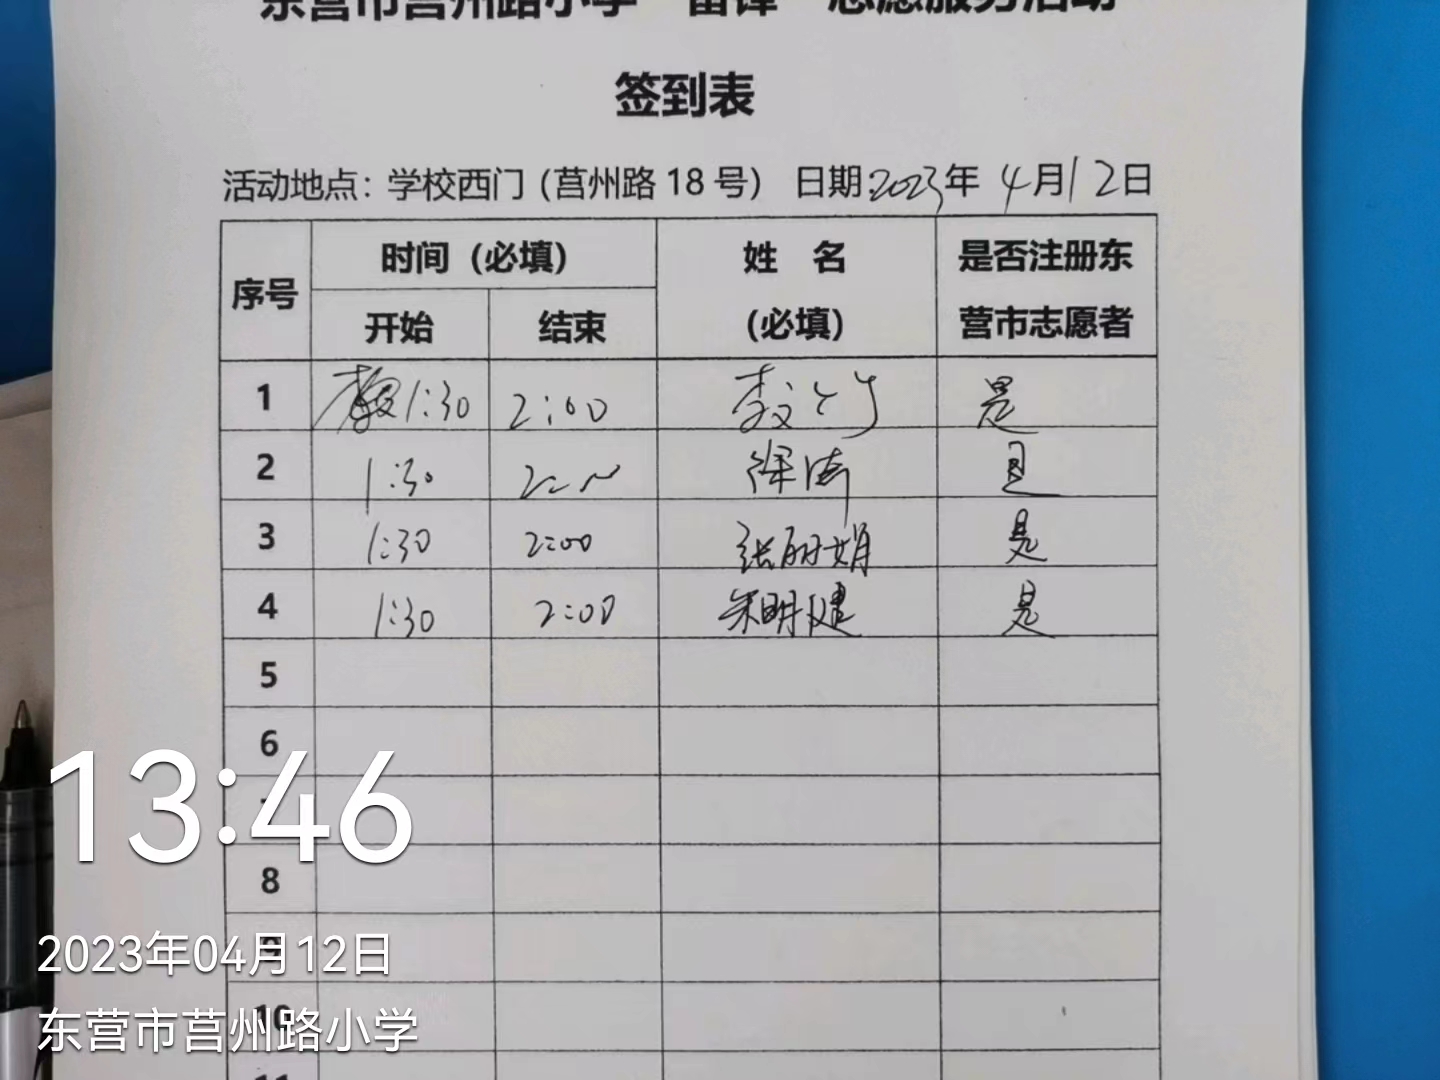 东营市莒州路小学“雷锋”志愿服务活动
签到表
活动地点：学校西门（莒州路 18 号） 日期:2023年 4月12日
序号 时间（必填） 姓 名 （必填） 是否注册东营市志愿者
开始 结束
1 1:30 2:00 李文 是
2 1:30 徐涛 是
3 1:30 2:00 张丽娟 是
4 1:30 2:00 朱明健 是
5
6
8
9
10
11
13:46
2023年04月12日
东营市莒州路小学